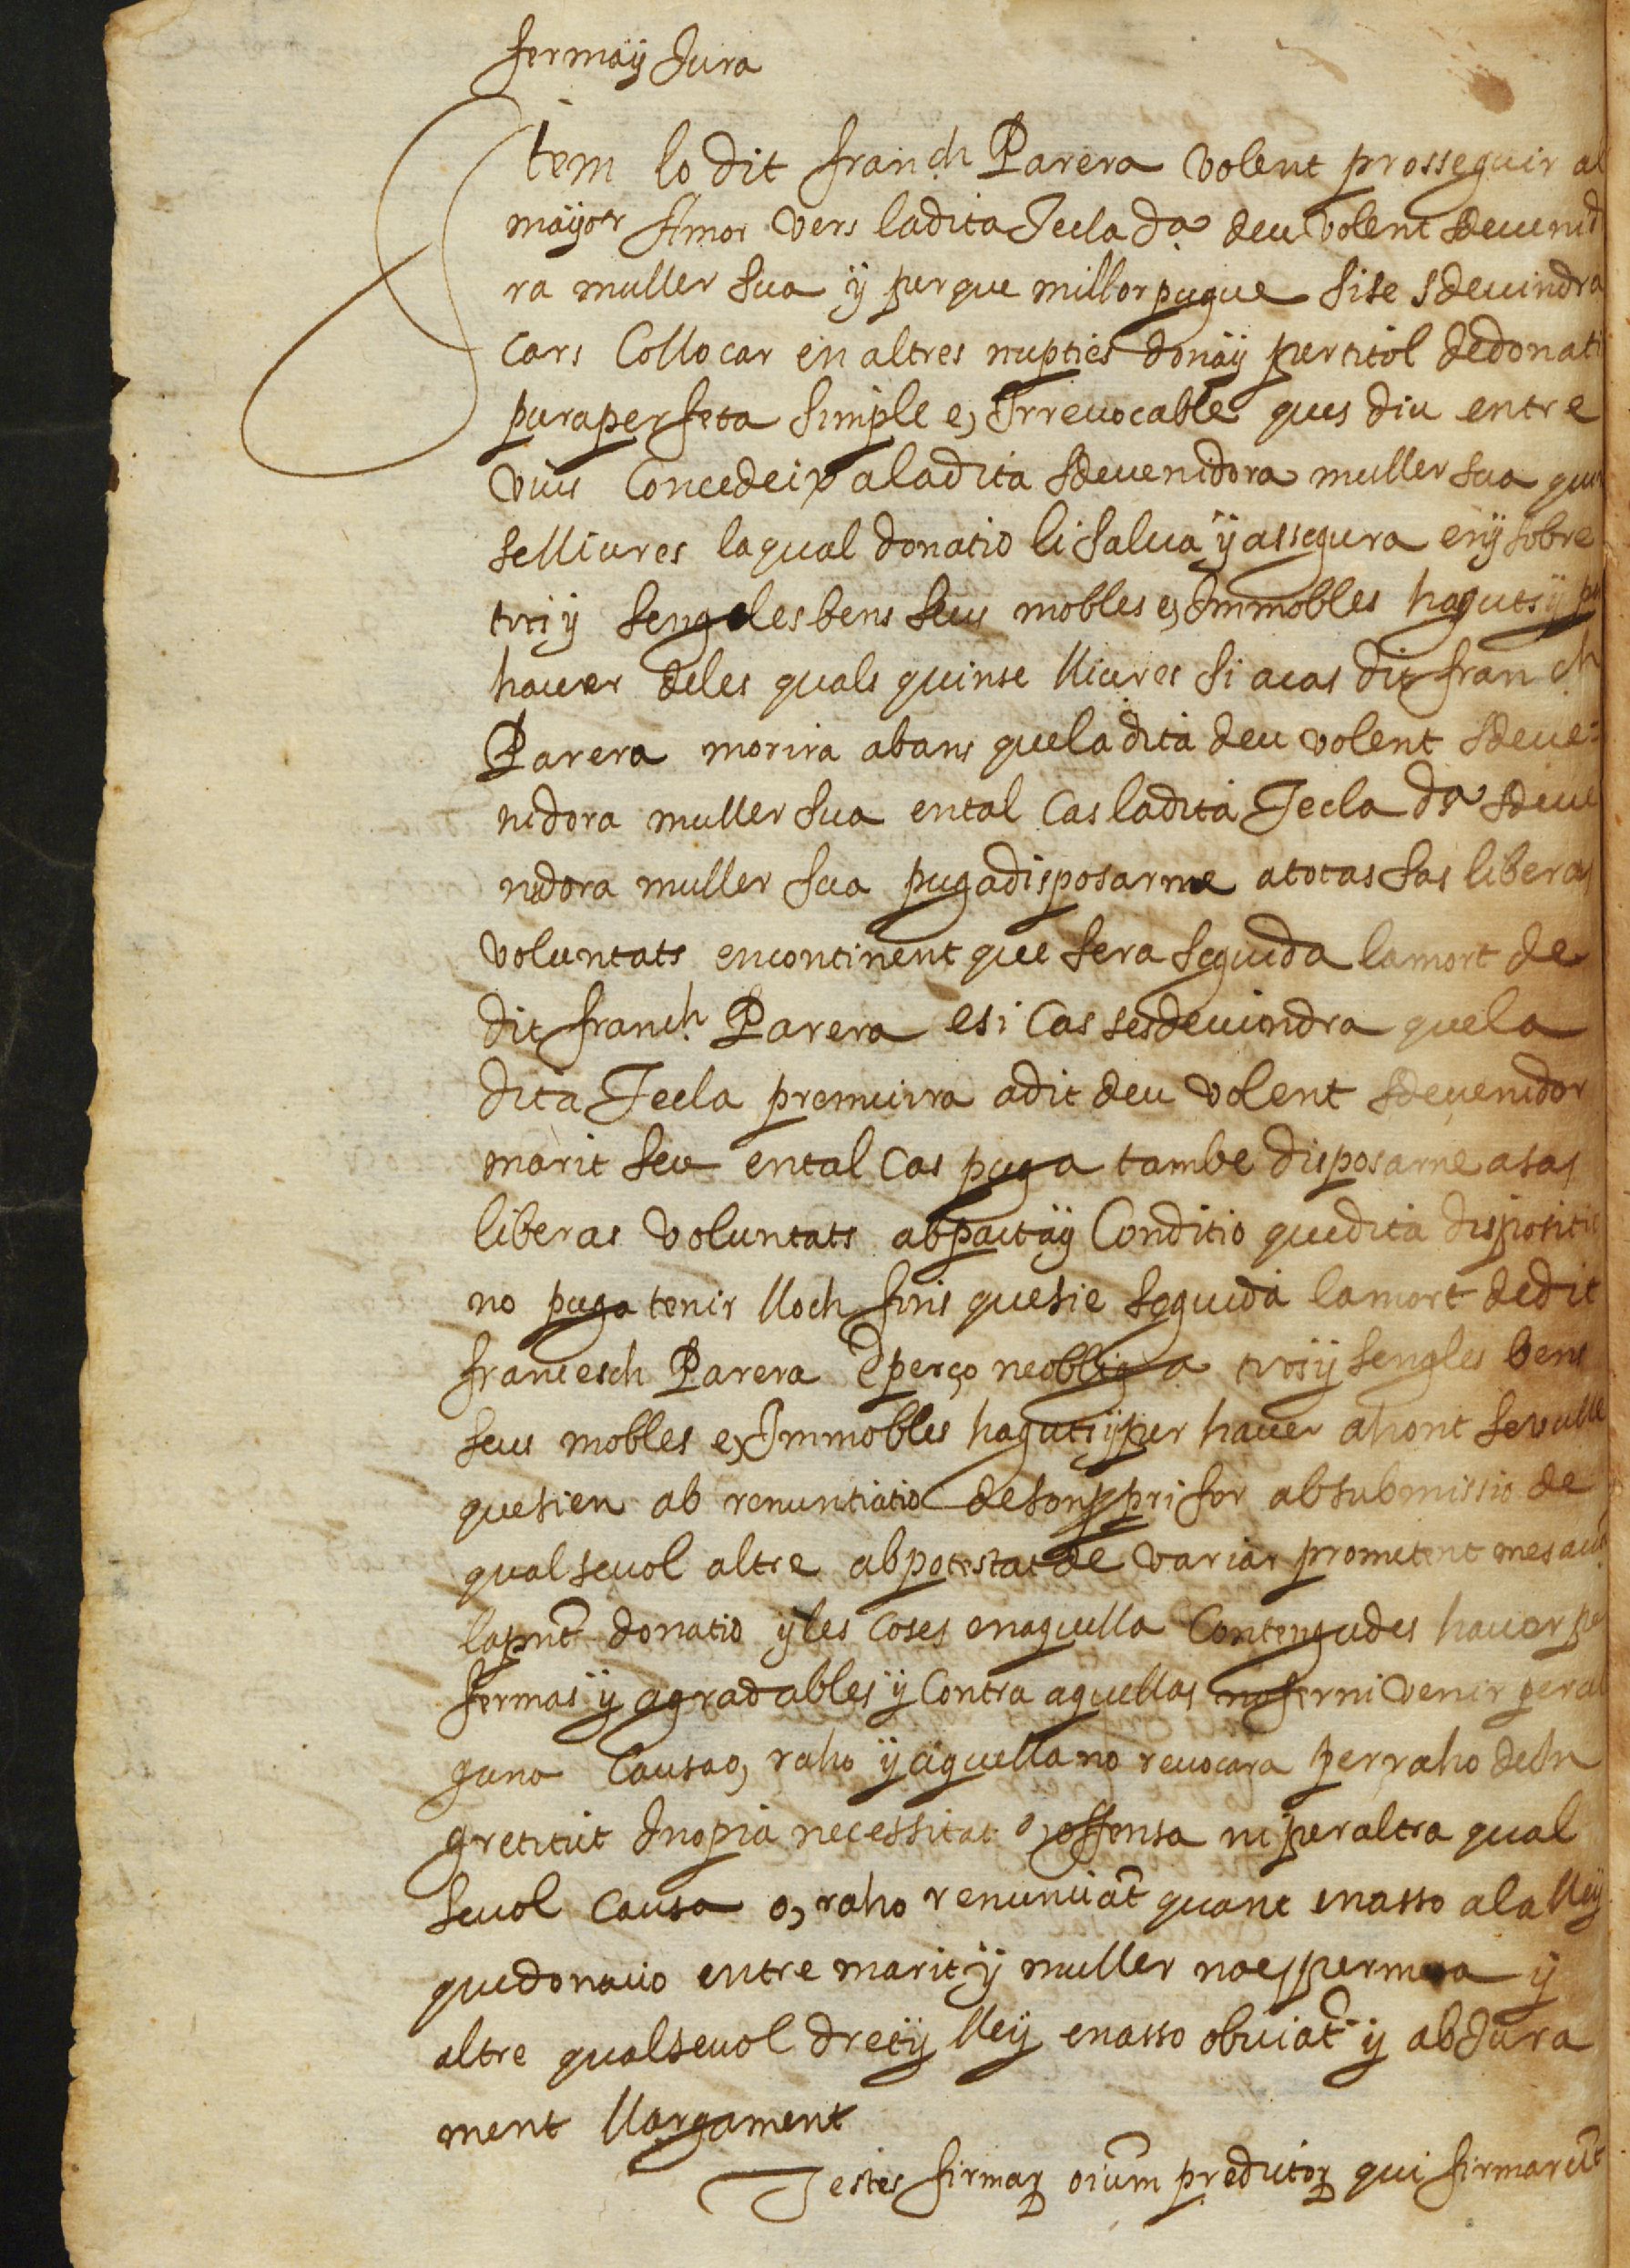 fermaÿ Jura
Item lo dit franch Parera volent prosseguir ab
maÿor Amor vers ladita Tecla da deu volent sdevenid
ra muller sua ÿ perque millor pugue si se sdevindra
Cars Collocar en altres nupties donaÿ pertitol dedonati
puraperfeta simple e, Irrevocable ques diu entre
vius Concedeix aladita sdevenidora muller sua quin
selliures laqual donatio li salva ÿ assegura enÿ sobre
totsÿ sengles bens seus mobles e, Immobles hagutsÿ per
haver deles quals quinse lliures si acas dit franch
Parera morira abans queladita deu volent sdeve=
nidora muller sua ental Cas ladita Tecla da sdeve
nidora muller sua pugadisposarne atotas sas liberas
voluntats encontinent que sera seguida lamort de
dit franch Parera esi Cas sesdevindra quela
dita Tecla premuira adit deu volent sdevenidor
marit seu ental Cas puga tambe disposarne asas
liberas voluntats abpactaÿ Conditio quedita dispositio
no puga tenir lloch fins quesie seguida lamort dedit
francesch Parera Eperço neobliga totsÿ sengles bens
seus mobles e, Immobles hagutsÿper haver ahont sevulle
quesien ab renuntiatio deson ppri for absubmissio de
qualsevol altre abpotestatde variar prometent mes avt
lapnt donatio ÿles Coses enaquella Contengudes haver per
fermas ÿ agradables ÿ Contra aquellas nofer ni venir peral
guna Causao, raho ÿ aquella no revocara perraho deIn
gretitut Inopia necessitat o, offensa ni peraltra qual
sevol Causa o, raho renunciāt quant enasso ala lleÿ
quedonacio entre maritÿ muller noespermesa ÿ
altre qualsevol dretÿ lleÿ enasso obviāt ÿ abJura
ment llargament
Testes firmaꝝ oium predictoꝝ qui firmarūt